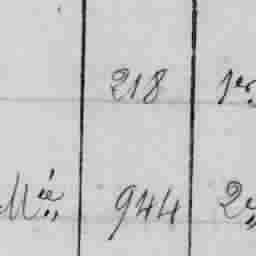 218 1er
Mée 944 2e